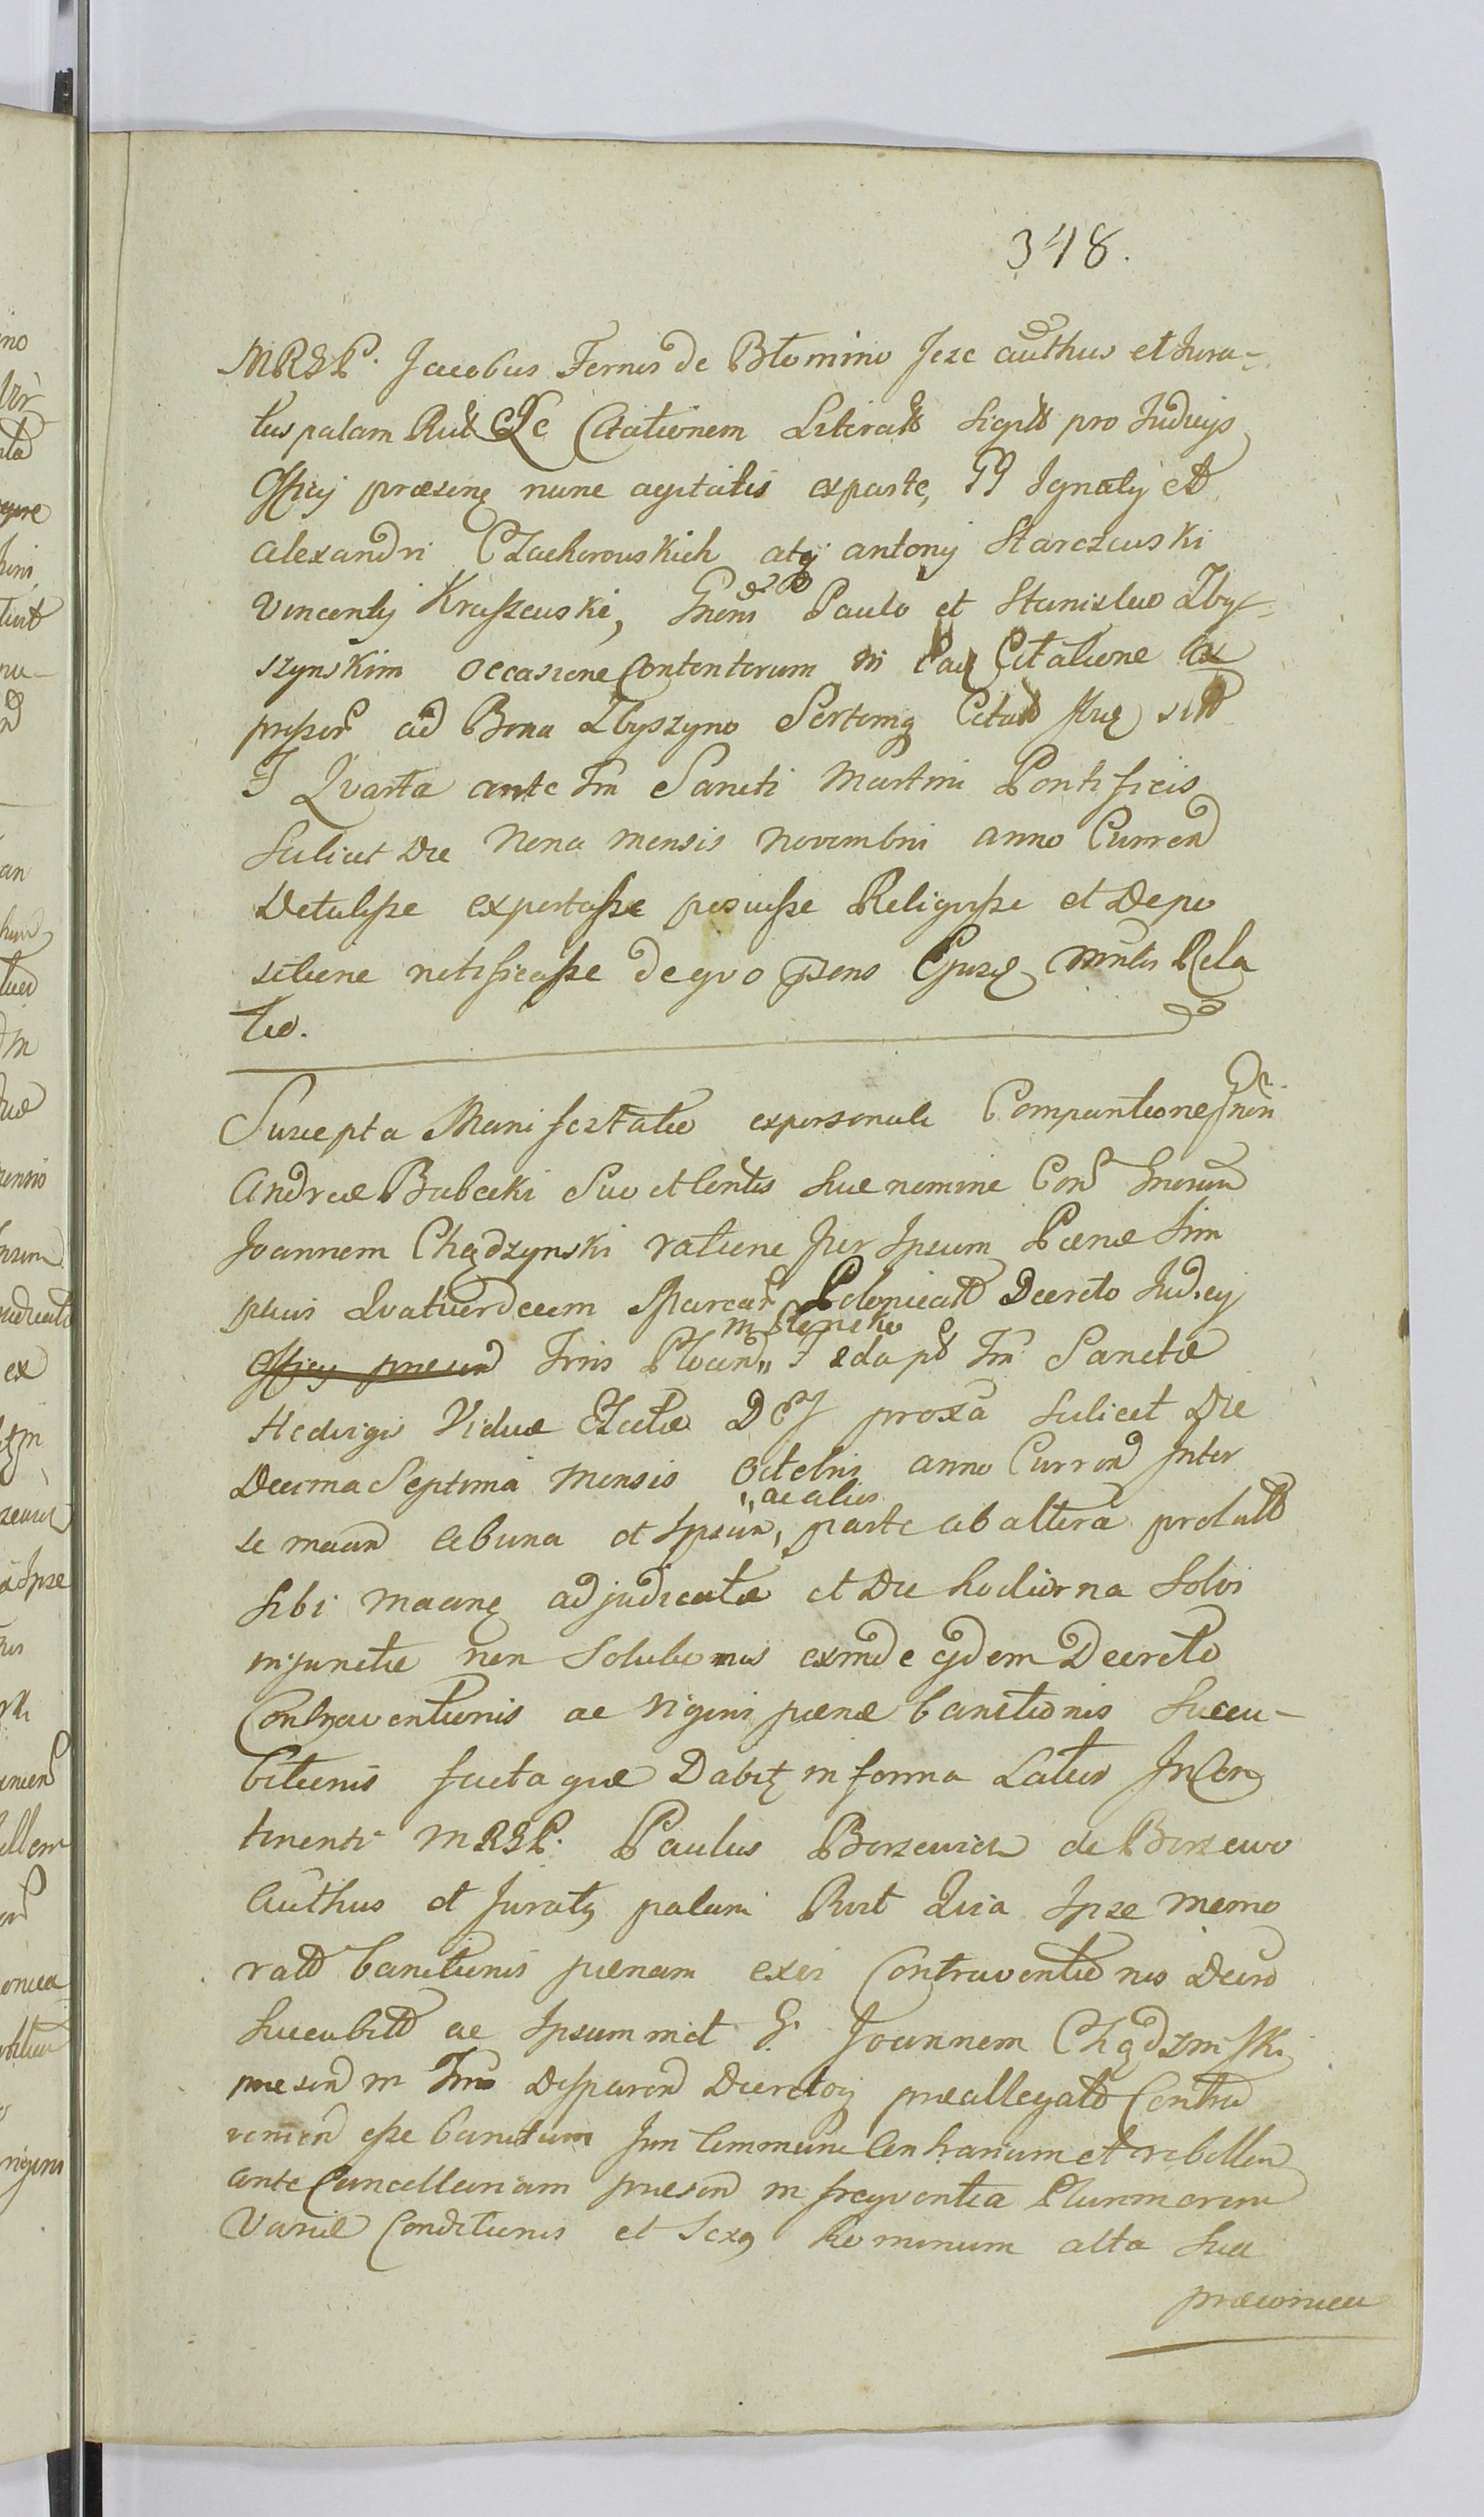 348.
MRGP. Jacobus Fernes de Błomino Jeze authus et Jura-
tus palam Rult Qz Citationem Literalt Sigilt pro Judicijs
Officij præsenq nunc agitatis exparte, GG Ignatij et
Alexandri Czachorowskich atq antonij Starczewski
Vincentij Kraszewski, Gnoso Paulo et Stanislao Zby-
szynskim occasione Contentorum in Ead Citatione Ex
presser ad Bona Zbyszyno Sortemq Citatt Suq sitt
F Qvarta ante Fm Sancti Martini Pontificis
Scilicet Die Nona mensis Novembri anno Currend
Detulisse exportasse posuisse Reliqvisse et Depo
sitione notificasse de qvo præns Ejusdq mntis Rela
tio.
Suscepta Manifestatio expersonali Comparitione Gnosi
Andreæ Bubecki Suo et Contis suæ nomine Cond Gnosum
Joannem Chądzynski ratione per Ipsum Pœnæ Sim
pucis Qvatuordecim Marcar Polonicalt Decreto Judicij
Officij præsend Trris Płocen F 2da pt Fm Sanctæ
in Płonsko
Hedvigis Viduæ Electæ D G proxa Scilicet Die
Decima Septima Mensis Octobris anno Currend Inter
se maan ab una et Ipsum, parte ab altera prolatt
ac alios
Sibi maanq adjudicatæ et Die hodierna Solvi
injunctæ non Solutionis exinde ejdem Decreto
Contraventionis ac vigori pœnæ banitionis Succu-
bitionis facta qvæ Dabitq in forma Latio Incon
tinenti MRGP. Paulus Borzewicz de Borzewo
Authus et Juratq palam Rult Qvia Ipse memo
ratt banitionis pœnam exer Contraventio nis Decro
Succubitt ac Ipsummet G. Joannem Chądzinski
præsend in Trrio Disparend Decretoq præallegatt Contra
venien esse banitum Juri Communi Contrarium et rebellem
ante Cancellariam præsend in freqventia Plurimorum
Variæ Conditionis et Sexq hominum alta Sua
præconica